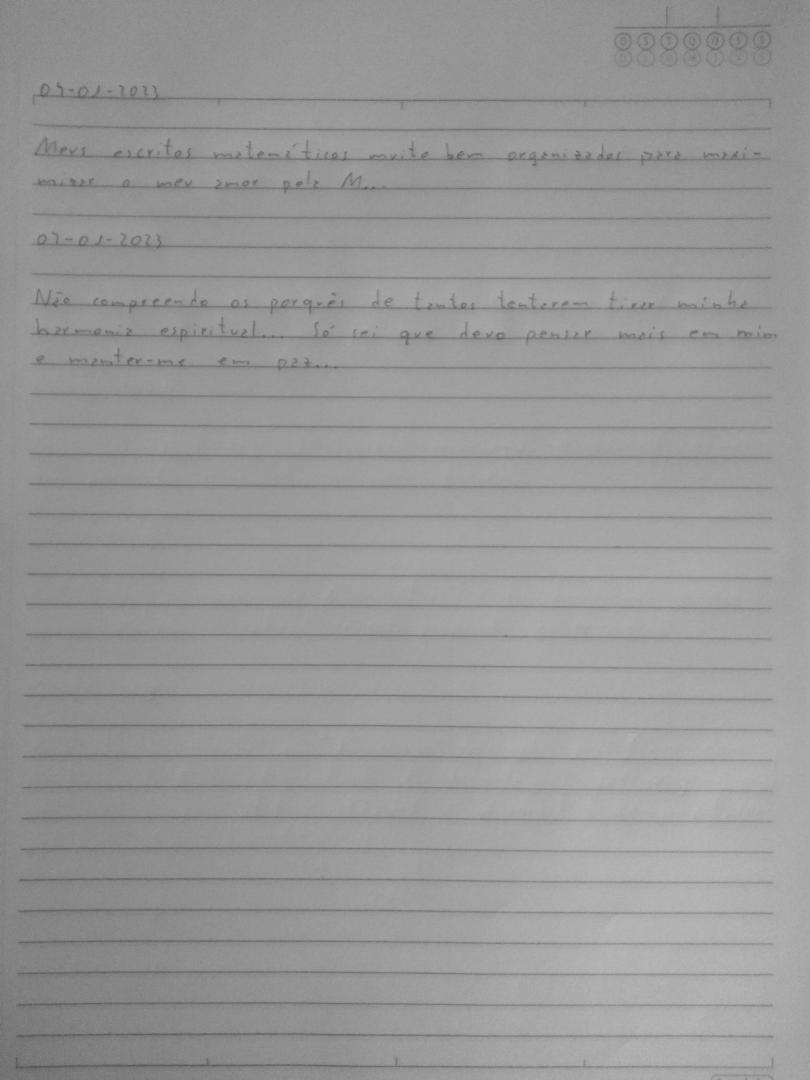 D S T Q Q S S
04-01-2023
Meus escritos matemáticos muito bem organizados para maxi-
mizar o meu amor pela M...
07-01-2023
Não compreendo os porquês de tantos tentarem tirar minha
harmonia espiritual... Só sei que devo pensar mais em mim
e manter-me em paz...